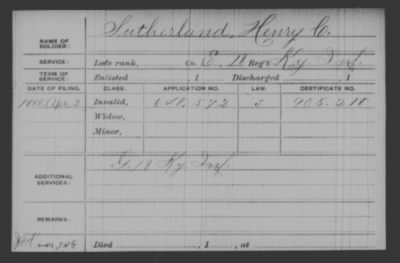 NAME OF SOLDIER: Sutherland, Henry C.
SERVICE: Late rank, Co. E, 18 Reg't Ky. Inf.
TERM OF SERVICE: Enlisted , 1 Discharged , 1
DATE OF FILING. CLASS. APPLICATION NO. LAW. CERTIFICATE NO.
1888 Apr. 2 Invalid, 648,572 405,218
Widow,
Minor,
ADDITIONAL SERVICES: G. 18 Ky. Inf.
REMARKS:
Died , 1 , at